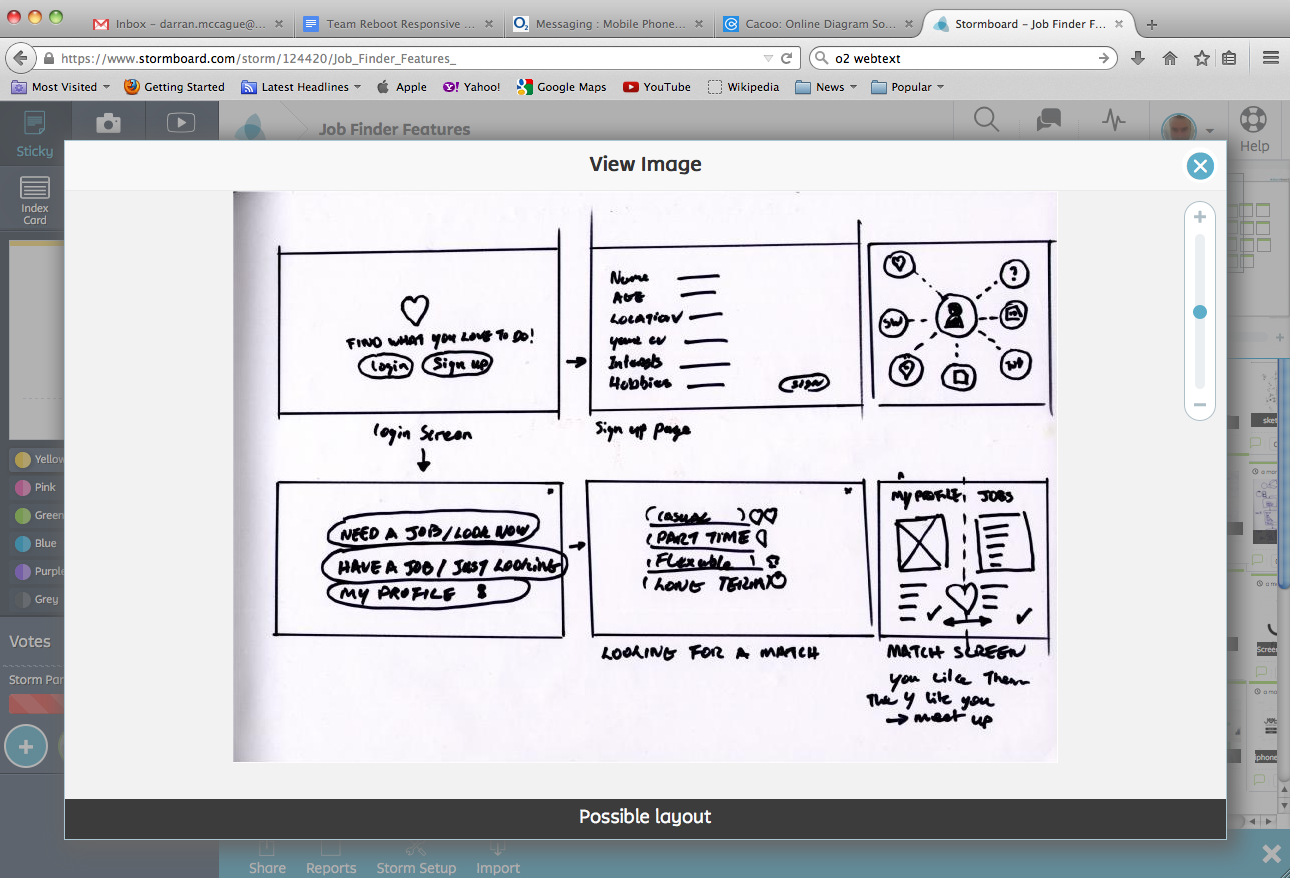 Inbox - darran.mccague@...
Team Reboot Responsive ...
Messaging : Mobile Phone...
Cacoo: Online Diagram So...
Stormboard - Job Finder F...
https://www.stormboard.com/storm/124420/Job_Finder_Features_
o2 webtext
Most Visited
Getting Started
Latest Headlines
Apple
Yahoo!
Google Maps
YouTube
Wikipedia
News
Popular
Job Finder Features
Sticky
Help
View Image
Index
Card
FIND WHAT YOU LOVE TO DO!
Login
Sign up
Login Screen
Name
AGE
LOCATION
your cv
Interests
Hobbies
SIGN
Sign up page
?
NEED A JOB/LOOK NOW
HAVE A JOB/ JUST LOOKING
MY PROFILE
(casual )
(PART TIME
(Flexable )
(LONG TERM)
LOOKING FOR A MATCH
MY PROFILE
JOBS
MATCH SCREEN
you Like Them
They like you
→ meet up
Yellow
Pink
Green
Blue
Purple
Grey
Votes
Storm Par
Possible layout
Share
Reports
Storm Setup
Import